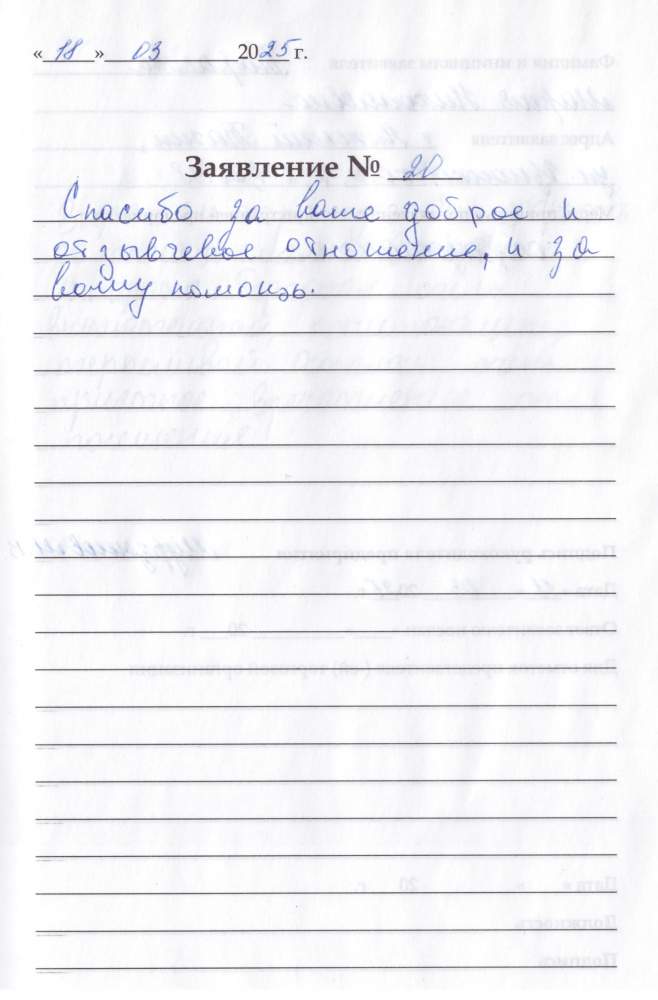 «18» 03 2025 г.
Заявление № 20
Спасибо за ваше доброе и
отзывчевое отношение, и за
вашу помощь.